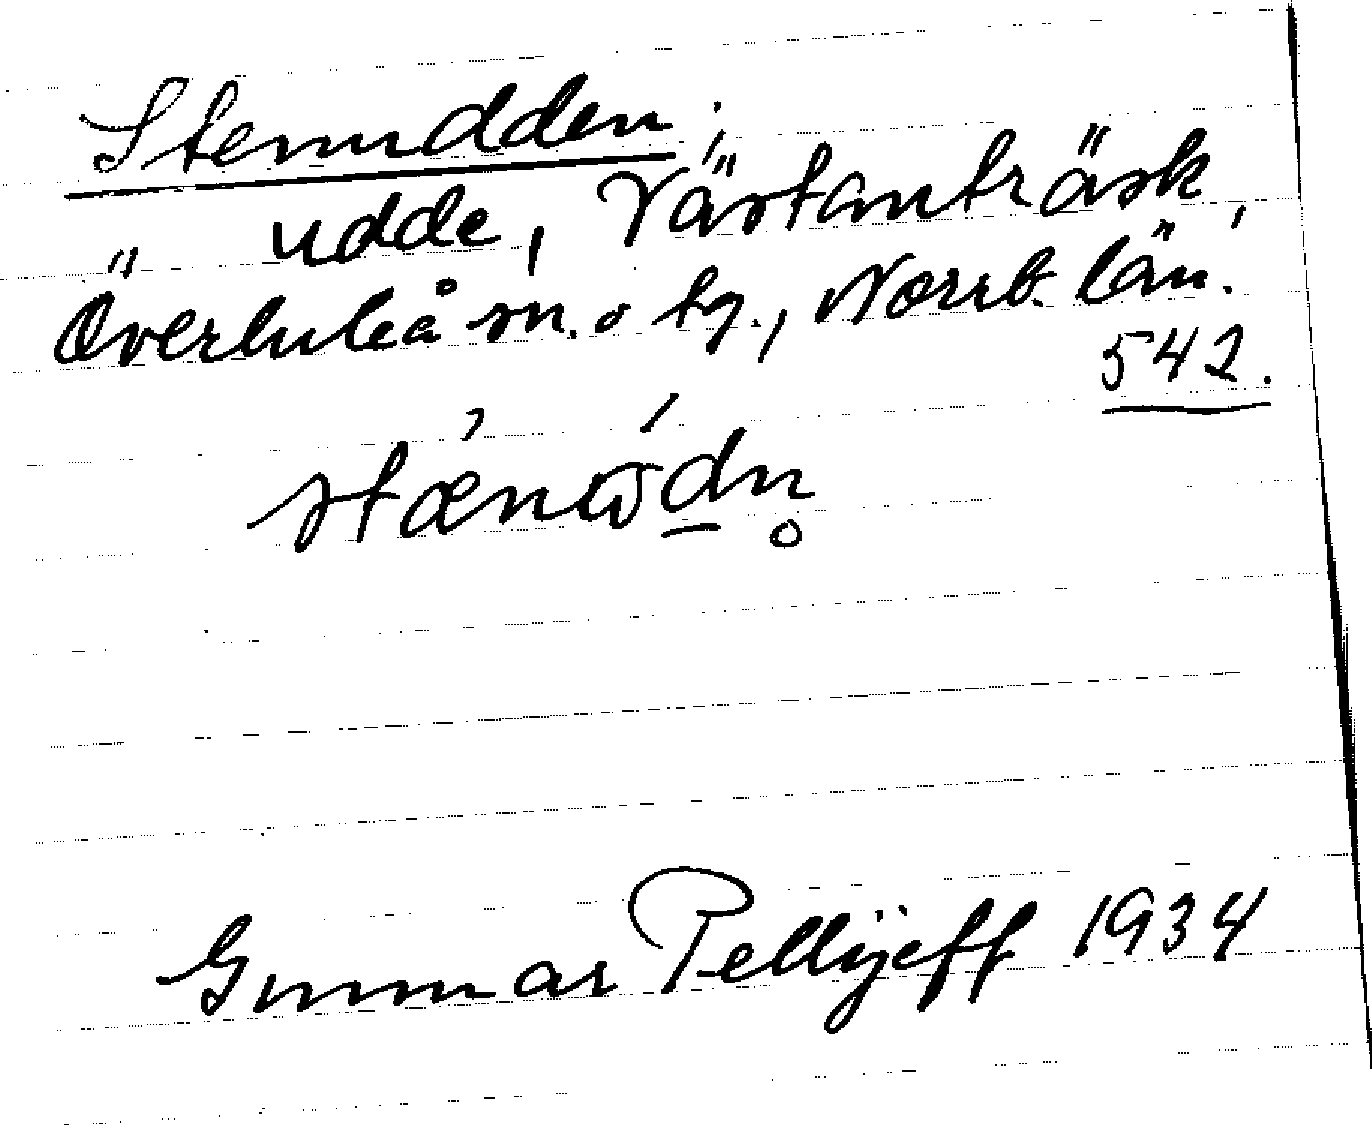 Stenudden;
udde, Västanträsk,
Överluleå sn. o tg., Norrb. län.
542.
Gunnar Pellijeff 1934